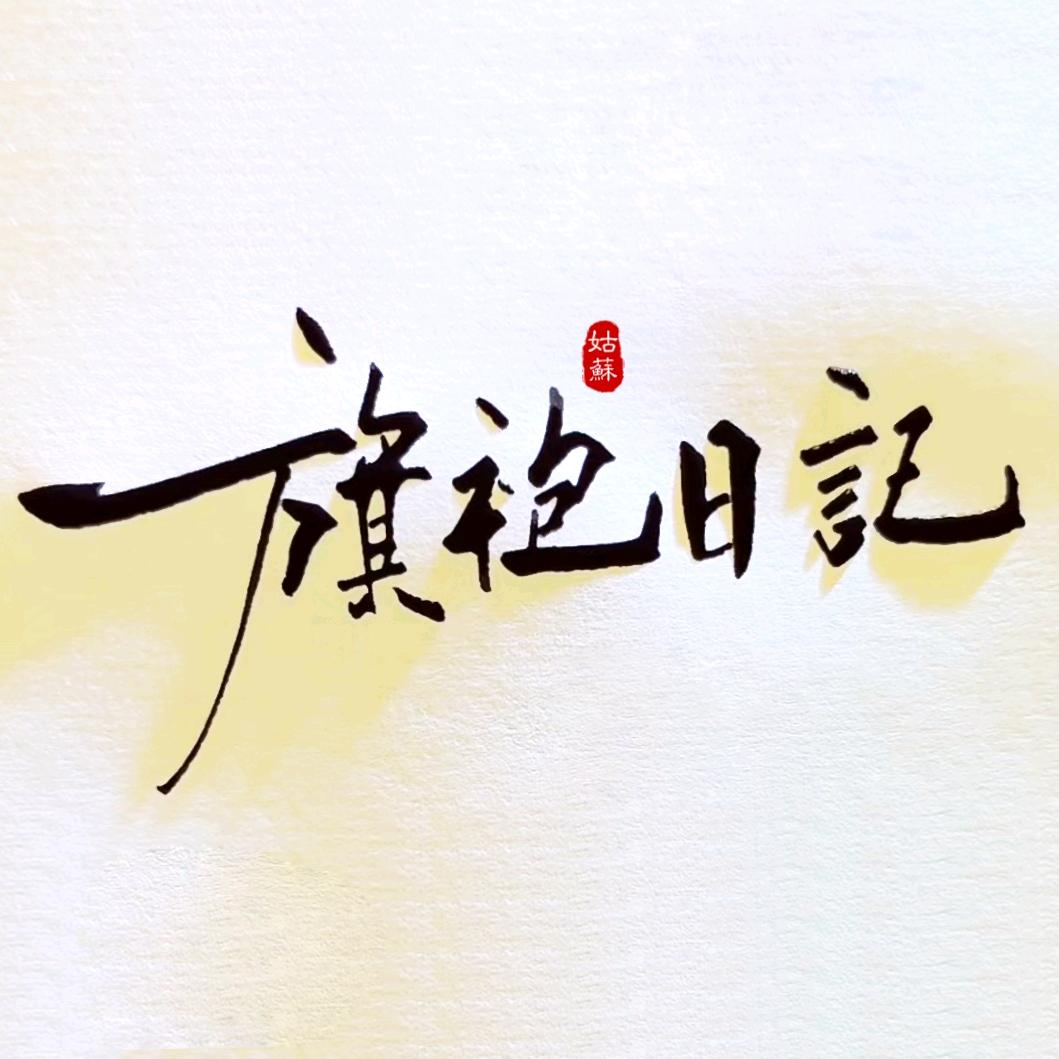 姑蘇
旗袍日記